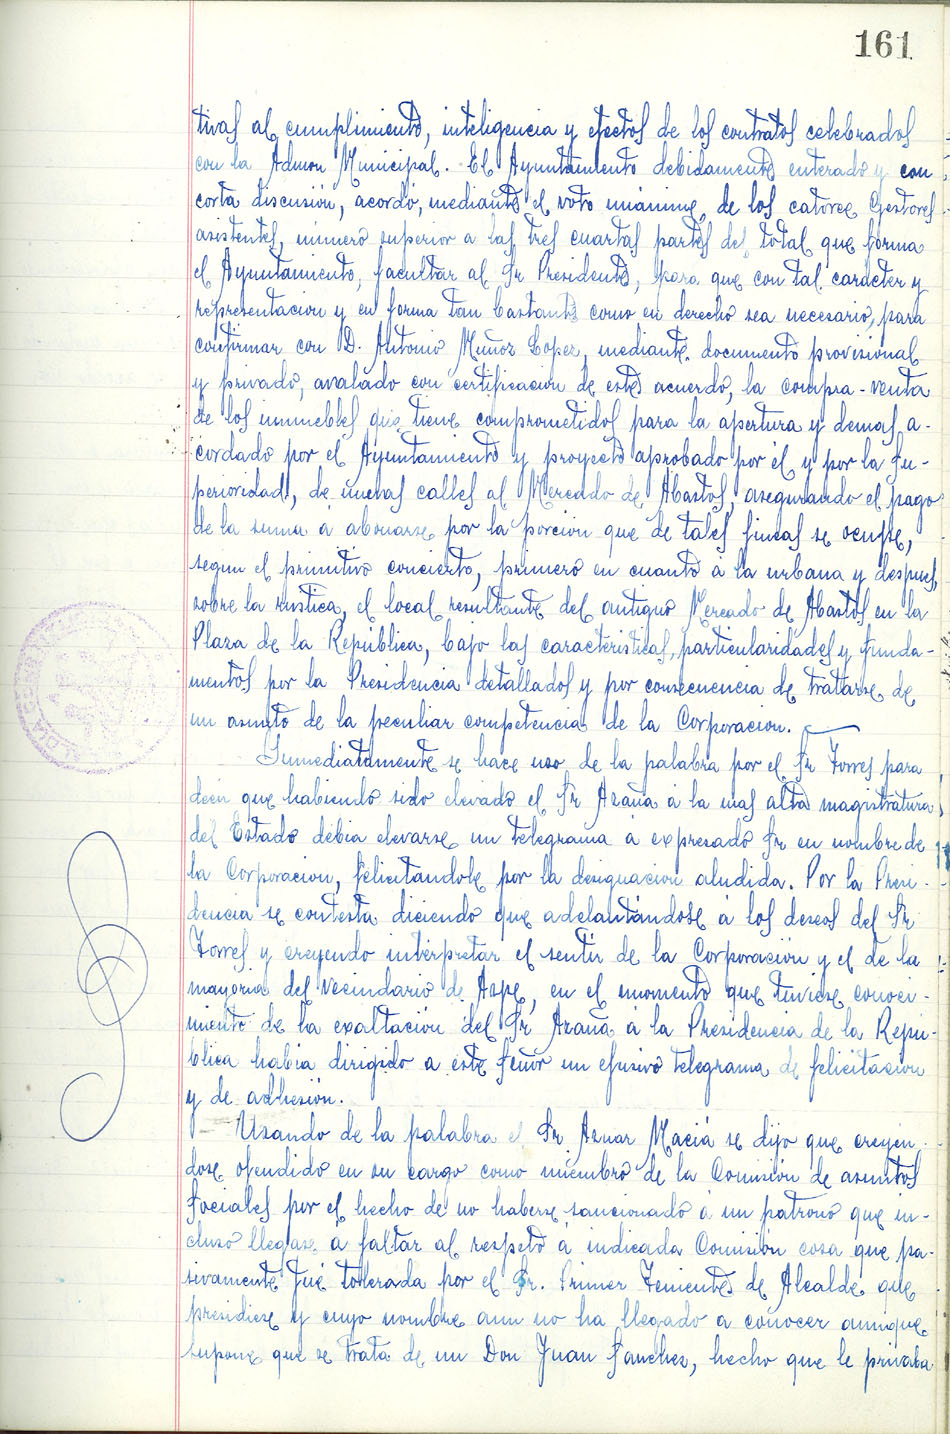 161
tivas al cumplimiento, inteligencia y efectos de los contratos celebrados
con la Admon Municipal. El Ayuntamiento debidamente enterado y con
corta discusión, acordó, mediante el voto unánime, de los catorce Gestores
asistentes, número superior a las tres cuartas partes del total que forma
el Ayuntamiento, facultar al Sr Presidente, para que con tal carácter y
representacion y en forma tan bastante como en derecho sea necesario, para
confirmar con D. Antonio Muñoz Lopez, mediante documento provisional
y privado, avalado con certificacion de este acuerdo, la compra-venta
de los inmuebles que tiene comprometidos para la apertura y demas a-
cordado por el Ayuntamiento y proyecto aprobado por él y por la Su-
perioridad, de nuevas calles al Mercado de Abastos, asegurando el pago
de la suma á abonarse por la porcion que de tales fincas se ocupe,
segun el primitivo concierto, primero en cuanto á la urbana y despues
sobre la rustica, el local resultante del antiguo Mercado de Abastos en la
Plaza de la República, bajo las caracteristicas, particularidades y funda-
mentos por la Presidencia detallados y por consecuencia de tratarse de
un asunto de la peculiar competencia de la Corporacion.
Inmediatamente se hace uso de la palabra por el Sr Torres para
decir que habiendo sido elevado el Sr Azaña á la mas alta magistratura
del Estado debia elevarse un telegrama á expresado Sr en nombre de
la Corporacion, felicitandole por la designacion aludida. Por la Presi-
dencia se contesta diciendo que adelantándose á los deseos del Sr
Torres y creyendo interpretar el sentir de la Corporación y el de la
mayoria del vecindario de Aspe, en el momento que tuviese conoci-
miento de la exaltación del Sr Azaña á la Presidencia de la Repú-
blica habia dirigido a este Señor un efusivo telegrama de felicitacion
y de adhesión.
Usando de la palabra el Sr Aznar Maciá se dijo que creyen-
dose ofendido en su cargo como miembro de la Comisión de asuntos
Sociales por el hecho de no haberse sancionado á un patrono que in-
cluso llegase á faltar al respeto á indicada Comisión cosa que pa-
sivamente fué tolerada por el Sr. Primer Teniente de Alcalde que
presidiese y cuyo nombre aun no ha llegado a conocer aunque
supone que se trata de un Don Juan Sanchez, hecho que le privaba